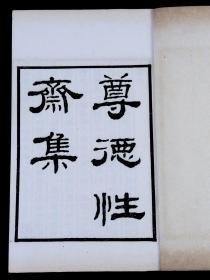 尊德性
齋集